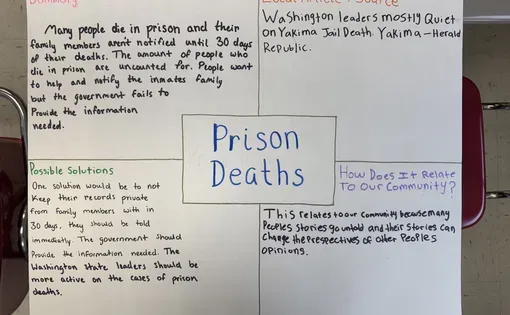 Summary
Many people die in prison and their
family members arent notified until 30 days
of their deaths. The amount of people who
die in prison are uncounted for. People want
to help and notify the inmates family
but the government fails to
Provide the information
needed.
Local Article / Source
Washington leaders mostly Quiet
on Yakima Jail Death. Yakima - Herald
Republic.
Prison
Deaths
Possible Solutions
One solution would be to not
Keep their records private
from family members with in
30 days, they should be told
immediatly. The government should
Provide the information needed. The
Washington State leaders should be
more active on the cases of prison
deaths.
How Does It Relate
To Our Community?
This relates to our Community because many
Peoples Stories go untold and their Stories can
Change the Prespectives of other Peoples
opinions.